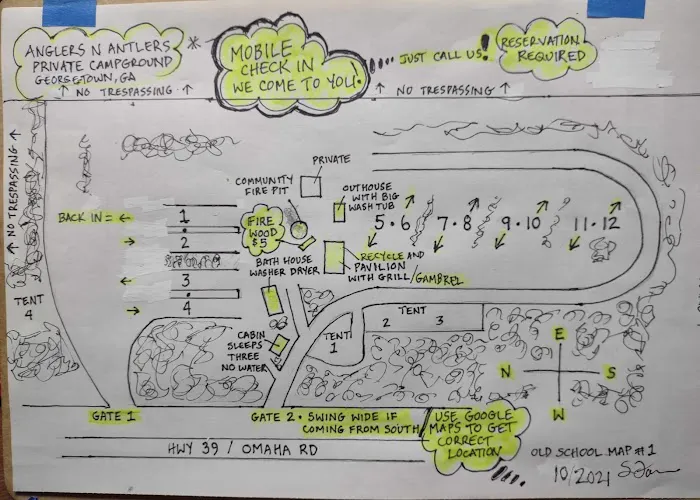 ANGLERS N ANTLERS
PRIVATE CAMPGROUND
GEORGETOWN, GA
*
MOBILE
CHECK IN
WE COME TO YOU.
JUST CALL US!
RESERVATION
REQUIRED
↑ NO TRESPASSING ↑
↑ NO TRESPASSING ↑
↑ NO TRESPASSING ↑
PRIVATE
COMMUNITY
FIRE PIT
OUTHOUSE
WITH BIG
WASH TUB
BACK IN = ←
1
→ 2
← 3
→ 4
FIRE
WOOD
$5
5 • 6
7 • 8
9 • 10
11 • 12
BATH HOUSE
WASHER DRYER
RECYCLE AND
PAVILION
WITH GRILL/GAMBREL
TENT
4
CABIN
SLEEPS
THREE
NO WATER
TENT
1
TENT
2 3
E
N S
W
GATE 1
GATE 2 • SWING WIDE IF
COMING FROM SOUTH
USE GOOGLE
MAPS TO GET
CORRECT
LOCATION
HWY 39 / OMAHA RD
OLD SCHOOL MAP #1
10/2021